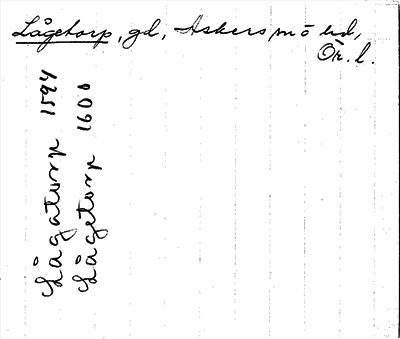 Lågetorp, gd, Askers sn ö hd,
Ör. l.
Lågatorp 1594
Lågetorp 1600